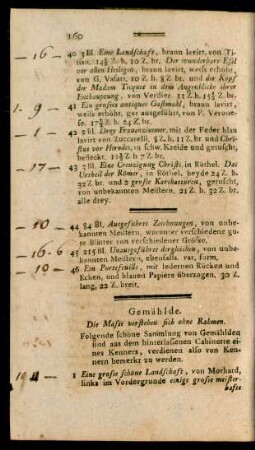 160
- 16 - 40 3 Bl. Eine Landschaft, braun lavirt, von Ti-
tian. 14½ Z. h. 10 Z. br. Der wunderbare Esel
vor allen Heiligen, braun lavirt, weiss erhöht,
von G. Vasari, 10 Z. h. 8Z br. und die Kopf
der Madam Tiquet in dem Augenblicke ihrer
Enthauptung, von Verdier. 11 Z h. 15½ Z br.
1. 9 - 41 Ein grosses antiques Gastmahl, braun lavirt,
weiss erhöht, gut ausgeführt, von P. Verone-
se. 17½ Z h. 24 Z br.
- 1 - 42 2 Bl. Drey Frauenzimmer, mit der Feder blau
lavirt von Zuccarelli. 9 Z. h. 11 Z. br. und Chri-
stus vor Herodes, in schw. Kreide, und getuscht,
befleckt. 11½ Z h 7 Z br.
- 17 - 43 3 Bl. Eine Creuzigung Christi, in Röthel. Das
Urtheil der Römer, in Röthel, beyde 24 Z. h.
32 Z br. und 2 grosse Karikaturen, getuscht,
von unbekannten Meistern. 21 Z h. 32 Z br.
alle drey.
- 10 - 44 84 Bl. Ausgeführte Zeichnungen, von unbe-
kannten Meistern, worunter verschiedene gu-
te Blätter von verschiedener Grösse.
- 16 - 6 45 215 Bl. Unausgeführte dergleichen, von un-
bekannten Meistern, ebenfalls, var. form,
- 10 - 46 Ein Portefeuille, mit ledernen Rücken und
Ecken, und blauen Papiere überzogen, 32 Z.
lang, 22 Z. breit.
Gemählde.
Die Masse verstehen sich ohne Rahmen.
Folgende schöne Sammlung von Gemählden
sind aus dem hinterlassenen Cabinette ei-
nes Kenners, verdienen also von Ken-
nern bemerkt zu werden.
1 Eine grosse schöne Landschaft, von Morhard,
links im Vordergrunde einige grosse meister-
hafte